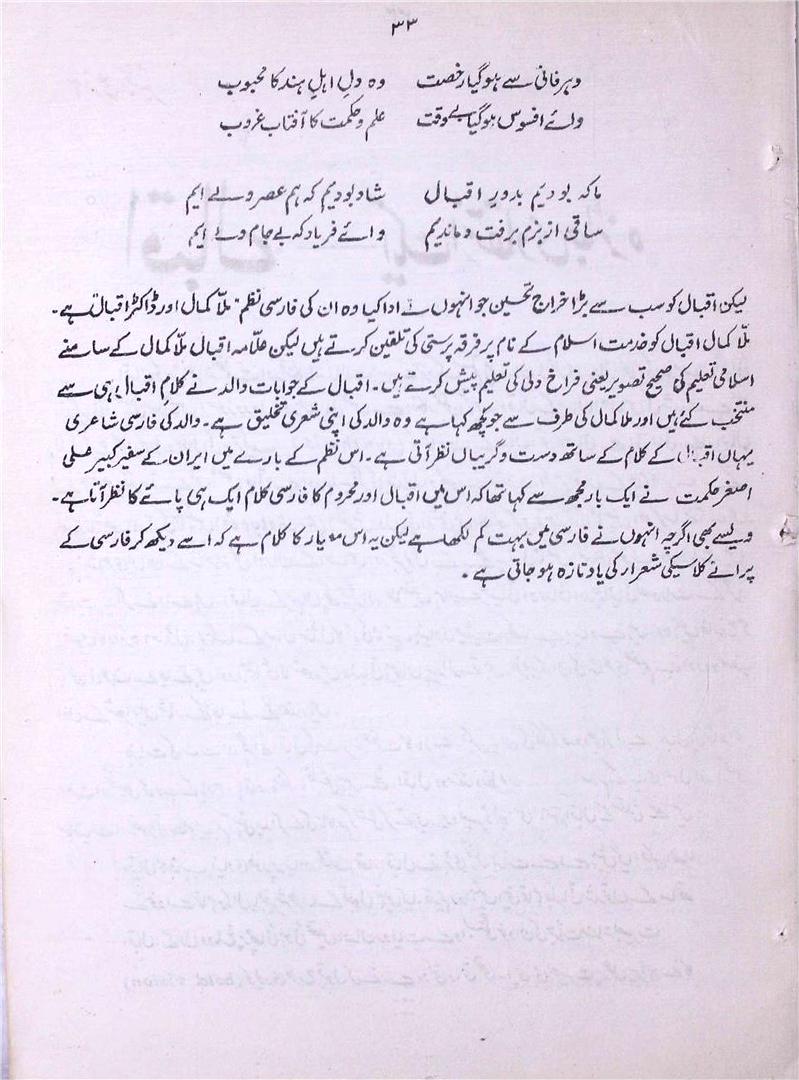 ۳۳
دہر فانی سے ہو گیا رخصت وہ دلِ اہلِ ہند کا محبوب
وائے افسوس ہو گیا بے وقت علم و حکمت کا آفتاب غروب
ما کہ بودیم بدورِ اقبال شاد بودیم کہ ہم عصرِ وے ایم
ساقی از بزم برفت و ماندیم وائے فریاد کہ بے جام و مے ایم
لیکن اقبال کو سب سے بڑا خراج تحسین جو انہوں نے ادا کیا وہ ان کی فارسی نظم "ملّا کمال اور ڈاکٹر اقبال" ہے۔
ملّا کمال اقبال کو خدمت اسلام کے نام پر فرقہ پرستی کی تلقین کرتے ہیں لیکن علّامہ اقبال ملّا کمال کے سامنے
اسلامی تعلیم کی صحیح تصویر یعنی فراخ دلی کی تعلیم پیش کرتے ہیں۔ اقبال کے جوابات والد نے کلامِ اقبال ہی سے
منتخب کئے ہیں اور ملا کمال کی طرف سے جو کچھ کہا ہے وہ والد کی اپنی شعری تخلیق ہے۔ والد کی فارسی شاعری
یہاں اقبال کے کلام کے ساتھ دست و گریباں نظر آتی ہے۔ اس نظم کے بارے میں ایران کے سفیر کبیر علی
اصغر حکمت نے ایک بار مجھ سے کہا تھا کہ اس میں اقبال اور محروم کا فارسی کلام ایک ہی پائے کا نظر آتا ہے۔
ویسے بھی اگرچہ انہوں نے فارسی میں بہت کم لکھا ہے لیکن یہ اس معیار کا کلام ہے کہ اسے دیکھ کر فارسی کے
پرانے کلاسیکی شعراء کی یاد تازہ ہو جاتی ہے۔